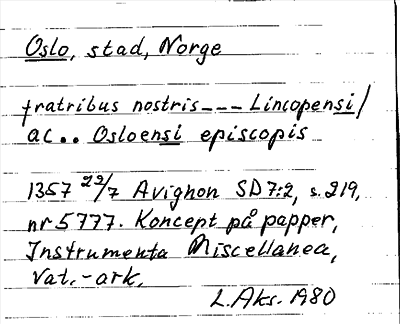 Oslo, stad, Norge
fratribus nostris --- Lincopensi/
ac .. Osloensi episcopis
1357 22/7 Avignon SD 7:2, s. 219,
nr 5777. Koncept på papper,
Instrumenta Miscellanea,
Vat.-ark.
L.Aks. 1980